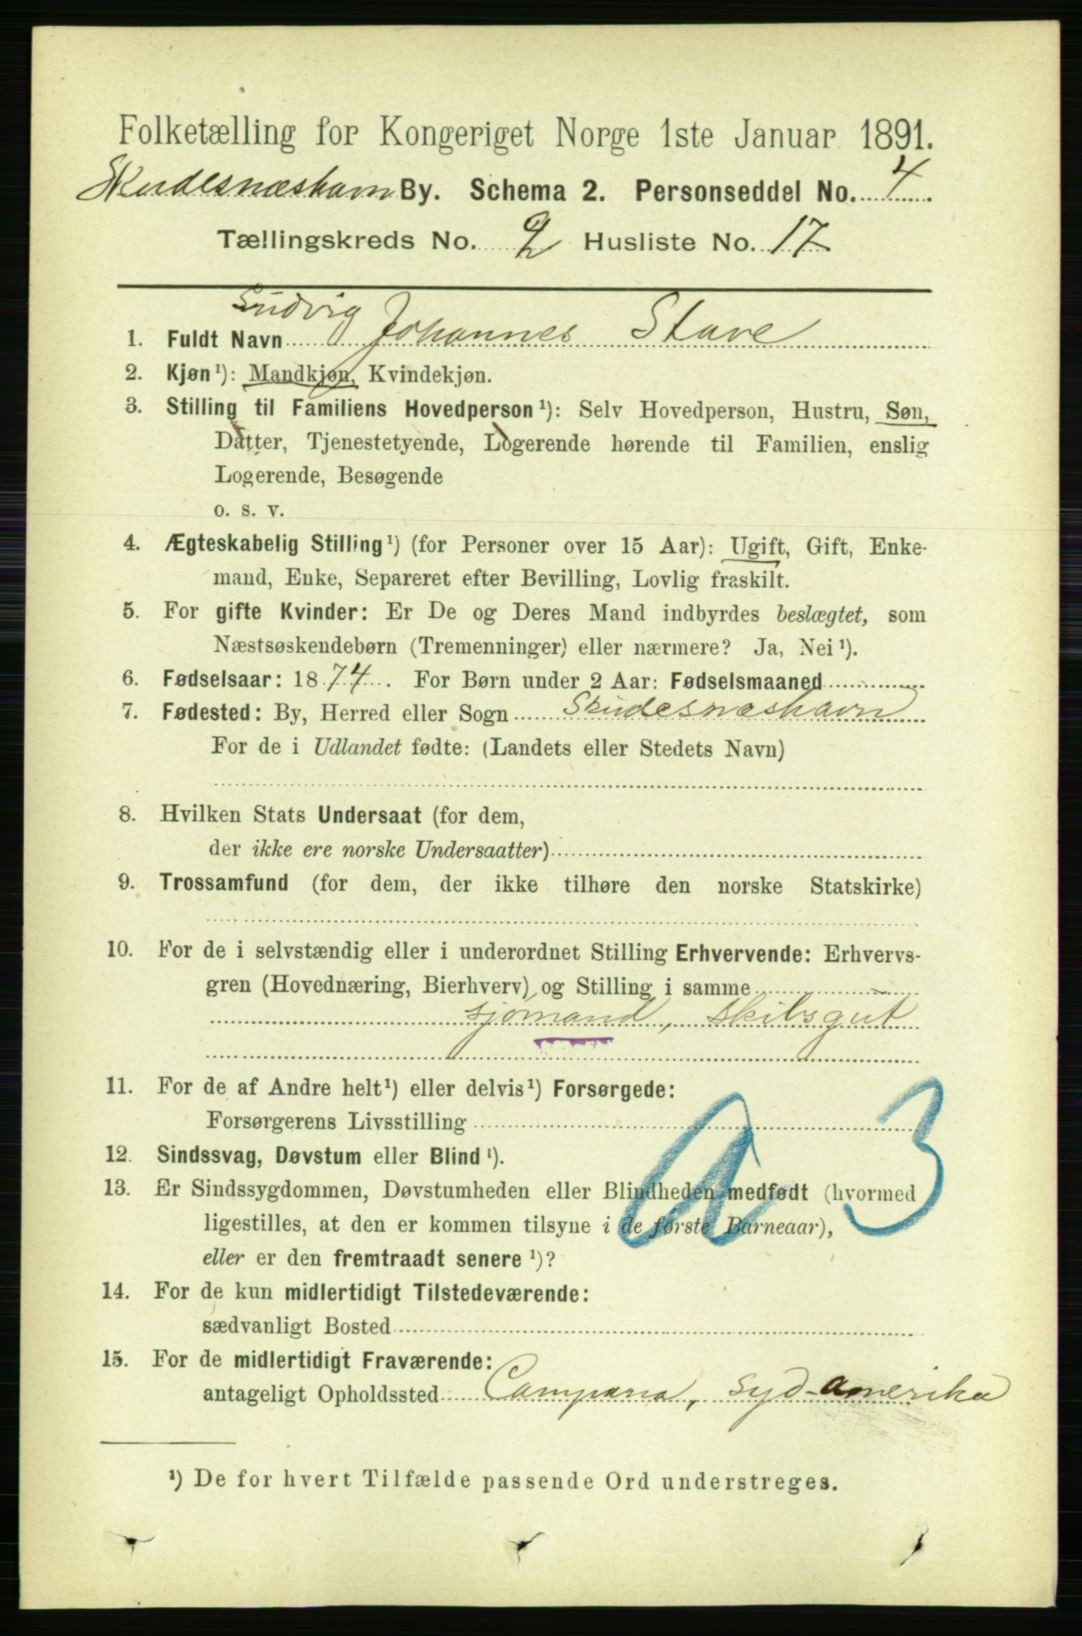 Folketælling for Kongeriget Norge 1ste Januar 1891.
Skudesnæshavn By. Schema 2. Personseddel No. 4
Tællingskreds No. 2 Husliste No. 17
1. Fuldt Navn Ludvig Johannes Stave
2. Kjøn ¹): Mandkjøn, Kvindekjøn.
3. Stilling til Familiens Hovedperson ¹): Selv Hovedperson, Hustru, Søn,
Datter, Tjenestetyende, Logerende hørende til Familien, enslig
Logerende, Besøgende
o. s. v.
4. Ægteskabelig Stilling ¹) (for Personer over 15 Aar): Ugift, Gift, Enke-
mand, Enke, Separeret efter Bevilling, Lovlig fraskilt.
5. For gifte Kvinder: Er De og Deres Mand indbyrdes beslægtet, som
Næstsøskendebørn (Tremenninger) eller nærmere? Ja, Nei ¹).
6. Fødselsaar: 1874. For Børn under 2 Aar: Fødselsmaaned
7. Fødested: By, Herred eller Sogn Skudesnæshavn
For de i Udlandet fødte: (Landets eller Stedets Navn)
8. Hvilken Stats Undersaat (for dem,
der ikke ere norske Undersaatter)
9. Trossamfund (for dem, der ikke tilhøre den norske Statskirke)
10. For de i selvstændig eller i underordnet Stilling Erhvervende: Erhvervs-
gren (Hovednæring, Bierhverv) og Stilling i samme
sjømand, skibsgut
11. For de af Andre helt ¹) eller delvis ¹) Forsørgede:
Forsørgerens Livsstilling
a 3
12. Sindssvag, Døvstum eller Blind ¹).
13. Er Sindssygdommen, Døvstumheden eller Blindheden medfødt (hvormed
ligestilles, at den er kommen tilsyne i de første Barneaar),
eller er den fremtraadt senere ¹)?
14. For de kun midlertidigt Tilstedeværende:
sædvanligt Bosted
15. For de midlertidigt Fraværende:
antageligt Opholdssted Campana, Syd-amerika
¹) De for hvert Tilfælde passende Ord understreges.